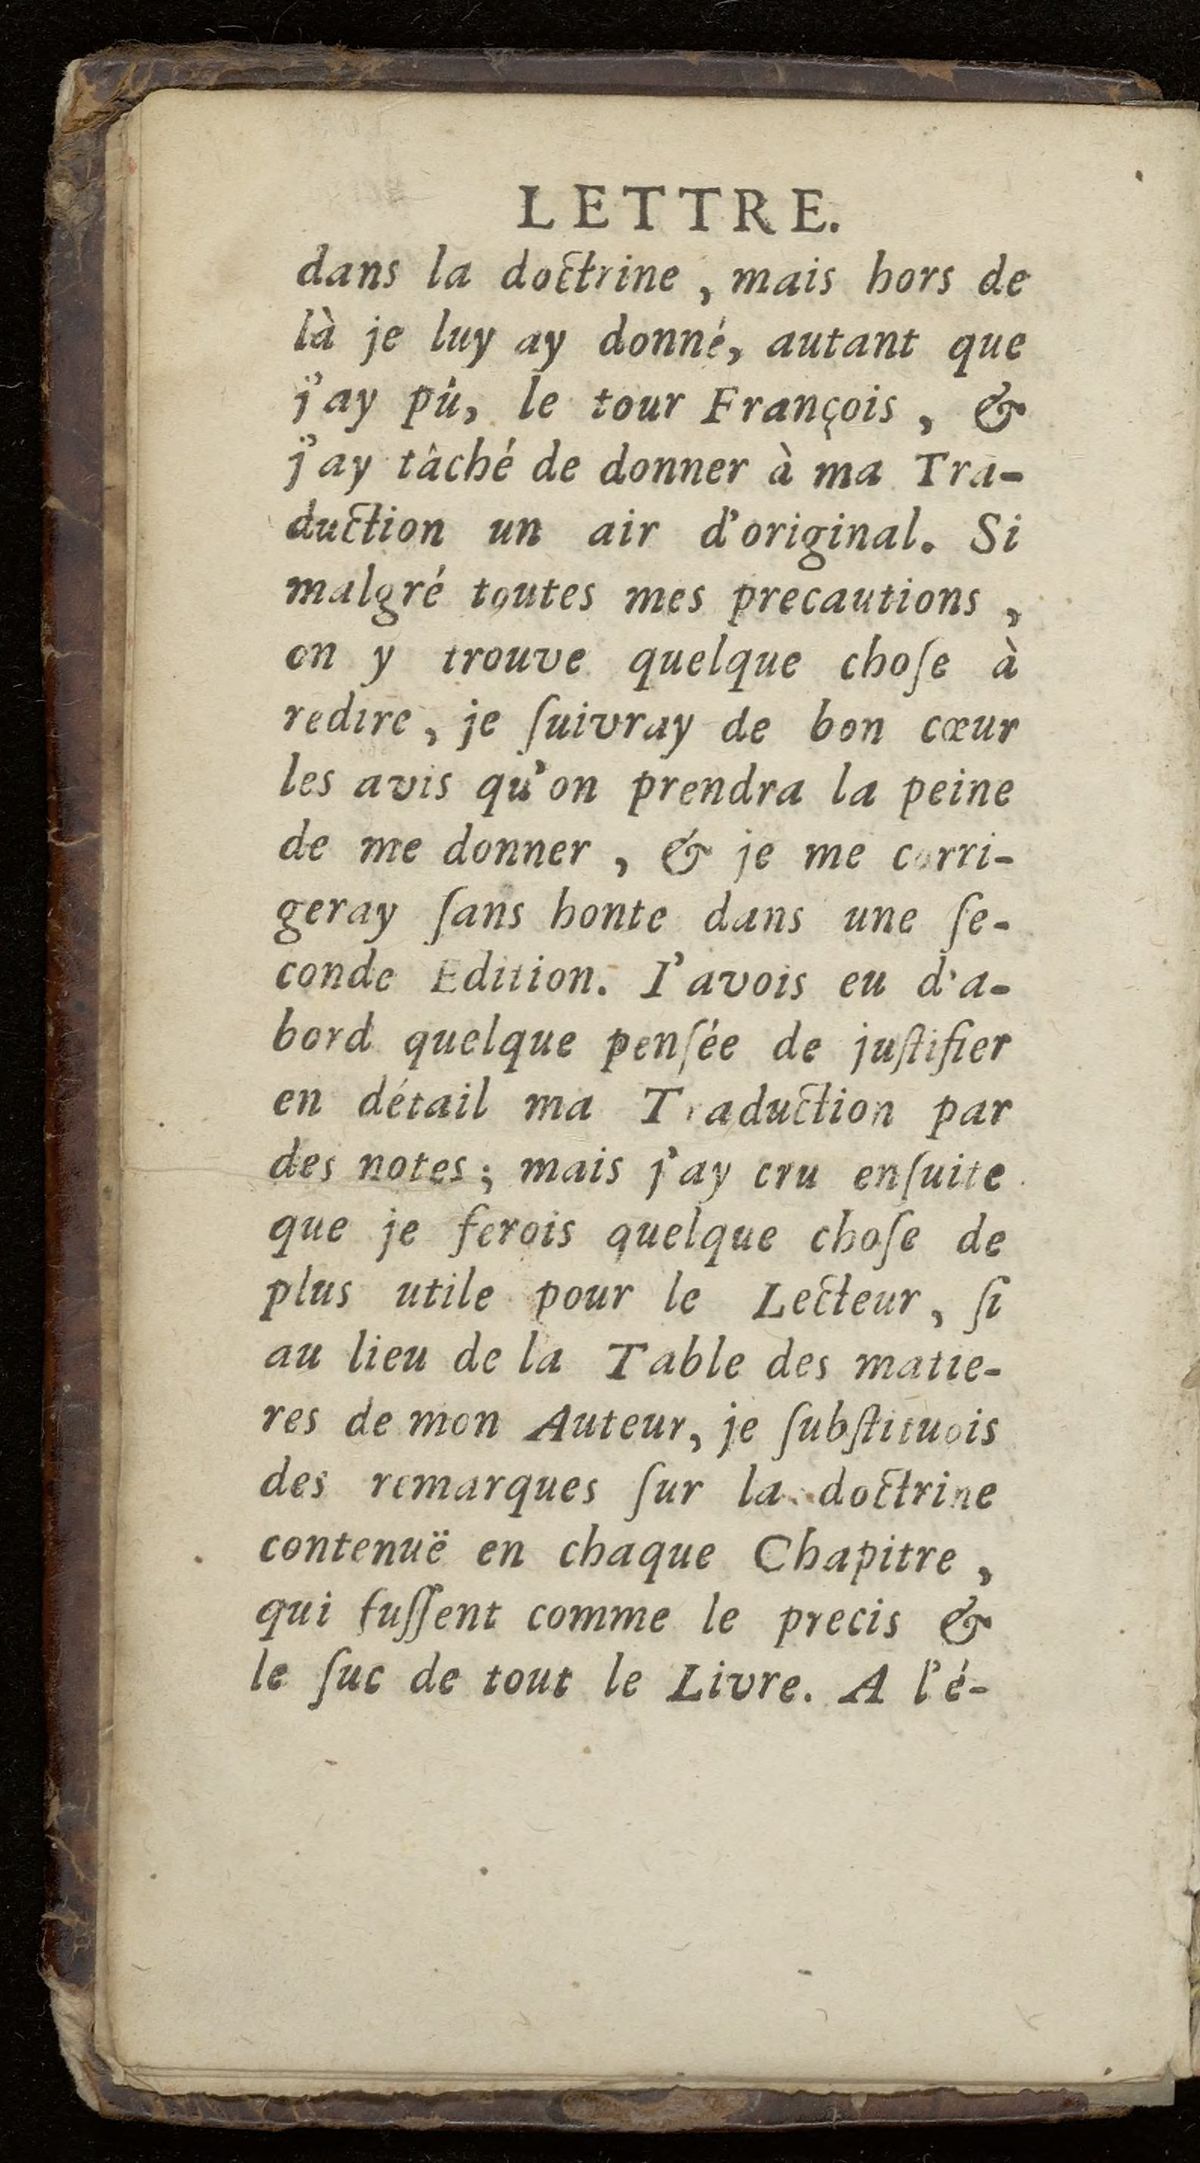 LETTRE.
dans la doctrine , mais hors de
là je luy ay donné, autant que
j'ay pû, le tour François , &
j'ay tâché de donner à ma Tra-
duction un air d'original. Si
malgré toutes mes precautions ,
on y trouve quelque choſe à
redire, je ſuivray de bon cœur
les avis qu'on prendra la peine
de me donner , & je me corri-
geray ſans honte dans une ſe-
conde Edition. I'avois eu d'a-
bord quelque penſée de juſtifier
en détail ma Traduction par
des notes; mais j'ay cru enſuite
que je ferois quelque choſe de
plus utile pour le Lecteur, ſi
au lieu de la Table des matie-
res de mon Auteur, je ſubſtituois
des remarques ſur la doctrine
contenuë en chaque Chapitre ,
qui fuſſent comme le precis &
le ſuc de tout le Livre. A l'é-